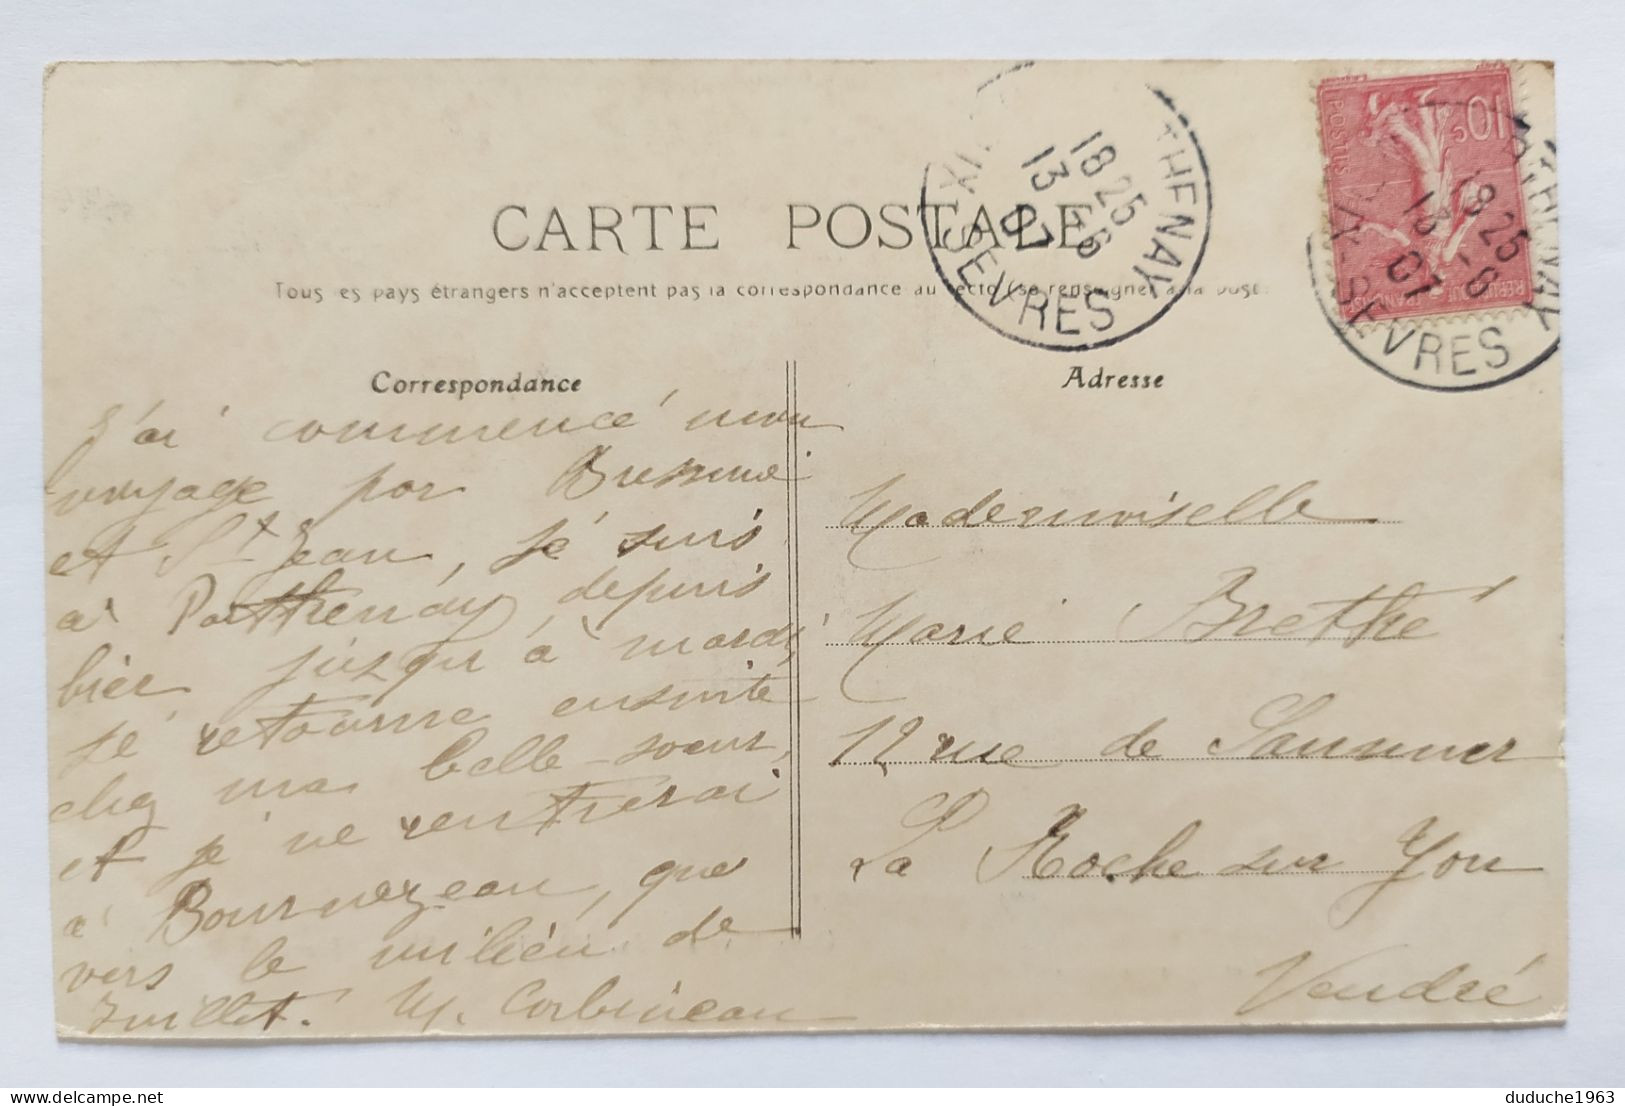 CARTE POSTALE
Tous les pays étrangers n'acceptent pas la correspondance au recto (se renseigner à la poste)
Correspondance
J'ai commencé mon
voyage par Bressuire
et St Jean, je suis
à Parthenay, depuis
hier jusqu'à mardi,
je retourne ensuite
chez ma belle-soeur,
et je ne rentrerai
à Bournezeau, que
vers le milieu de
Juillet. M. Corbineau
Adresse
Mademoiselle
Marie Brethé
12 rue de Saumur
La Roche sur Yon
Vendée
PARTHENAY
18 25
13 -6
07
DX-SEVRES
10c
POSTES
REPUBLIQUE FRANÇAISE
PARTHENAY
18 25
13 -6
07
DX-SEVRES
duduche1963